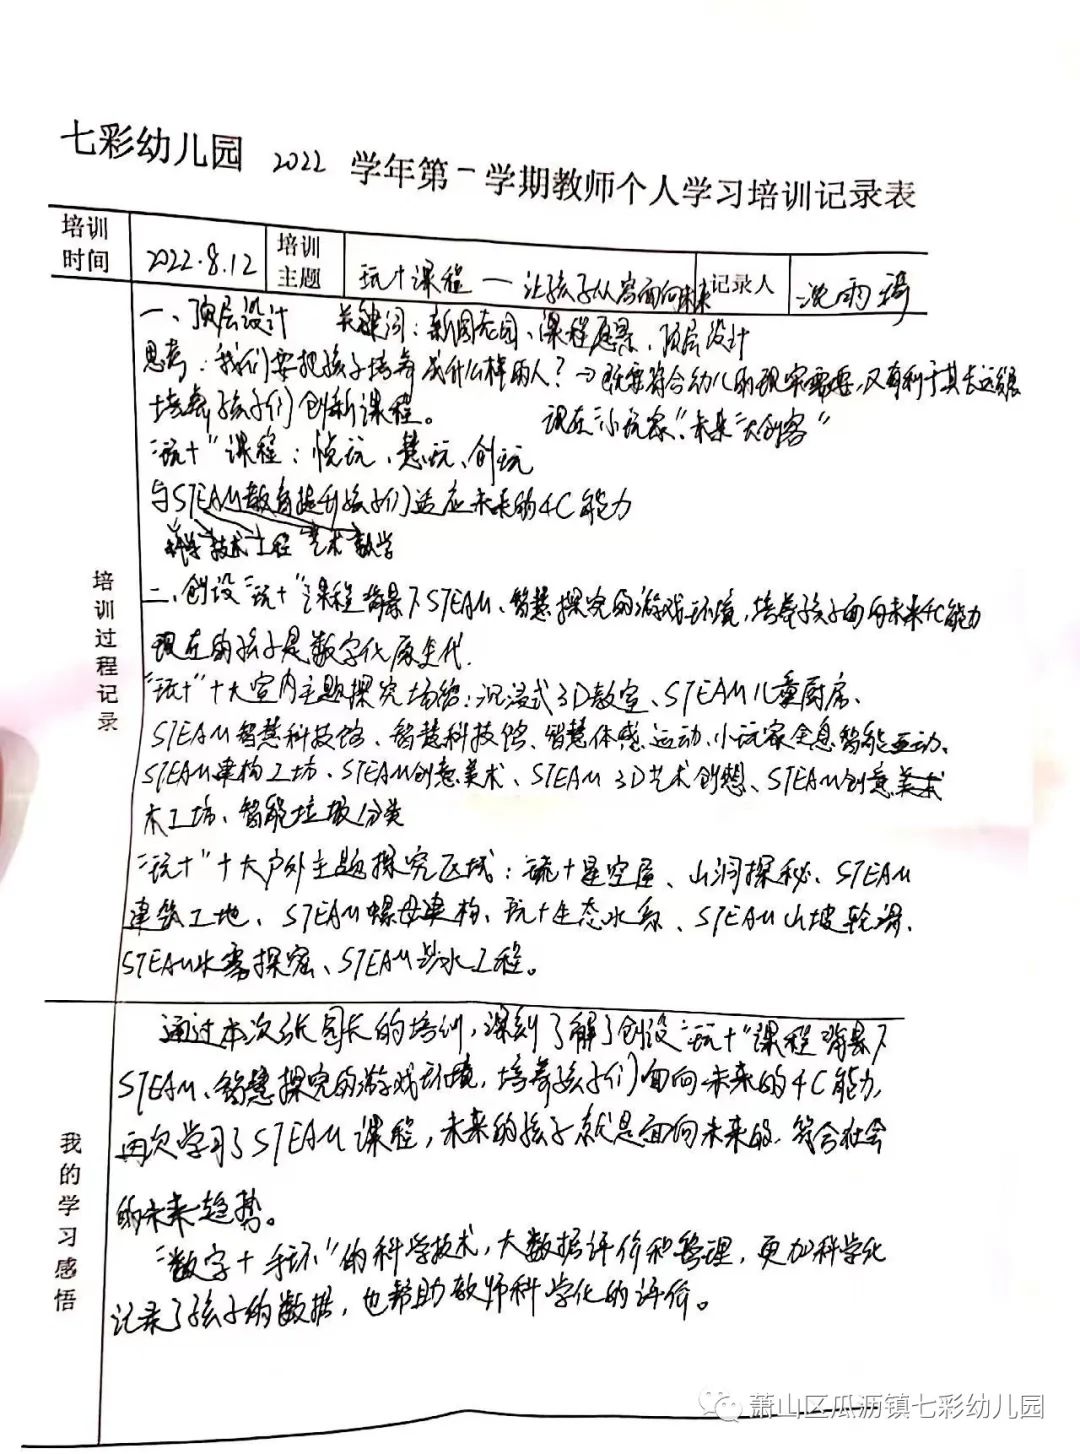 七彩幼儿园 2022 学年第一学期教师个人学习培训记录表
培训时间 2022.8.12 培训主题 玩+课程 — 让孩子从容面向未来 记录人 沈雨琦
一、顶层设计 关键词：新园花园、课程愿景、顶层设计
思考：我们要把孩子培养成什么样的人？→既要符合幼儿的现实需要，又有利于其长远发展
培养孩子们创新课程。 现在“小玩家”，未来“大创客”
“玩+”课程：悦玩、慧玩、创玩
与STEAM教育提升孩子们适应未来的4C能力
科学 技术 工程 艺术 数学
培训过程记录
二、创设“玩+”课程背景下STEAM、智慧探究的游戏环境，培养孩子面向未来4C能力
现在的孩子是数字化原生代.
“玩+”十大室内主题探究场馆：沉浸式3D教室、STEAM儿童厨房、
STEAM智慧科技馆、智慧科技馆、智慧体感运动、小玩家全息智能互动、
STEAM建构工坊、STEAM创意美术、STEAM 3D艺术创想、STEAM创意美术
木工坊、智能垃圾分类
“玩+”十大户外主题探究区域：玩+星空屋、山洞探秘、STEAM
建筑工地、STEAM螺母建构、玩+生态水系、STEAM山坡轮滑、
STEAM水雾探密、STEAM涉水工程。
我的学习感悟
通过本次张园长的培训，深刻了解了创设“玩+”课程背景下
STEAM、智慧探究的游戏环境，培养孩子们面向未来的4C能力，
再次学习了STEAM课程，未来的孩子就是面向未来的，符合社会
的未来趋势。
“数字+手环”的科学技术，大数据评价和管理，更加科学化
记录了孩子的数据，也帮助教师科学化的评价。
萧山区瓜沥镇七彩幼儿园